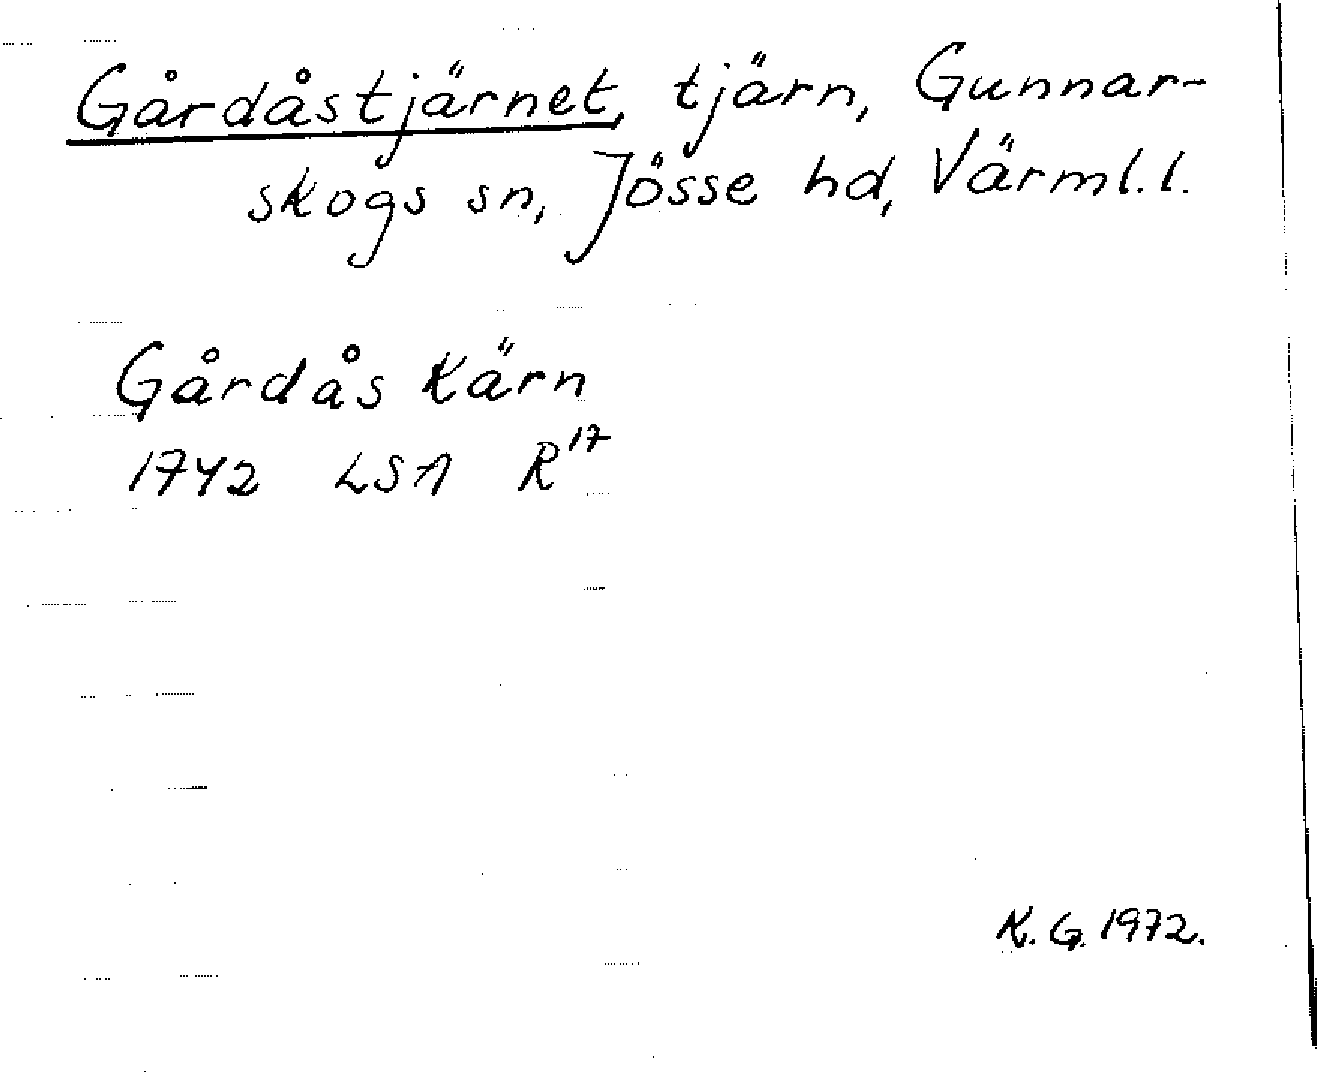 Gårdåstjärnet, tjärn, Gunnar-
skogs sn, Jösse hd, Värml. l.
Gårdås Kärn
1742 LSA R17
K. G. 1972.